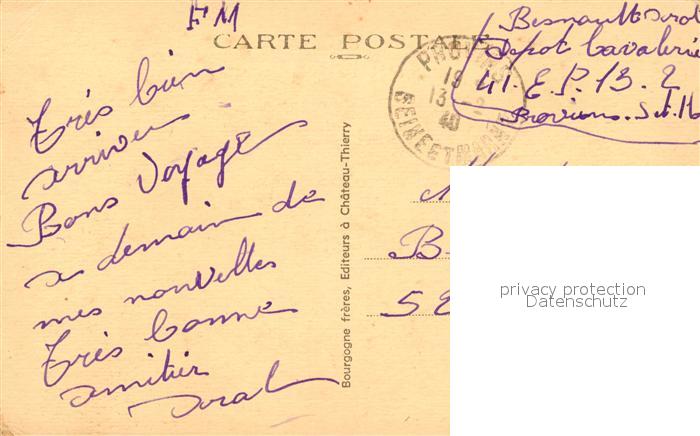 FM
CARTE POSTALE
Dépot Cavalerie
41. E. P. 13. 2
Provins. S. et M
PROVINS
19
13
40
SEINE ET MARNE
Très bien
arrivée
Bons Voyage
a demain de
mes nouvelles
Très bonne
amitier
Bourgogne frères, Editeurs à Château-Thierry
B
52
privacy protection
Datenschutz